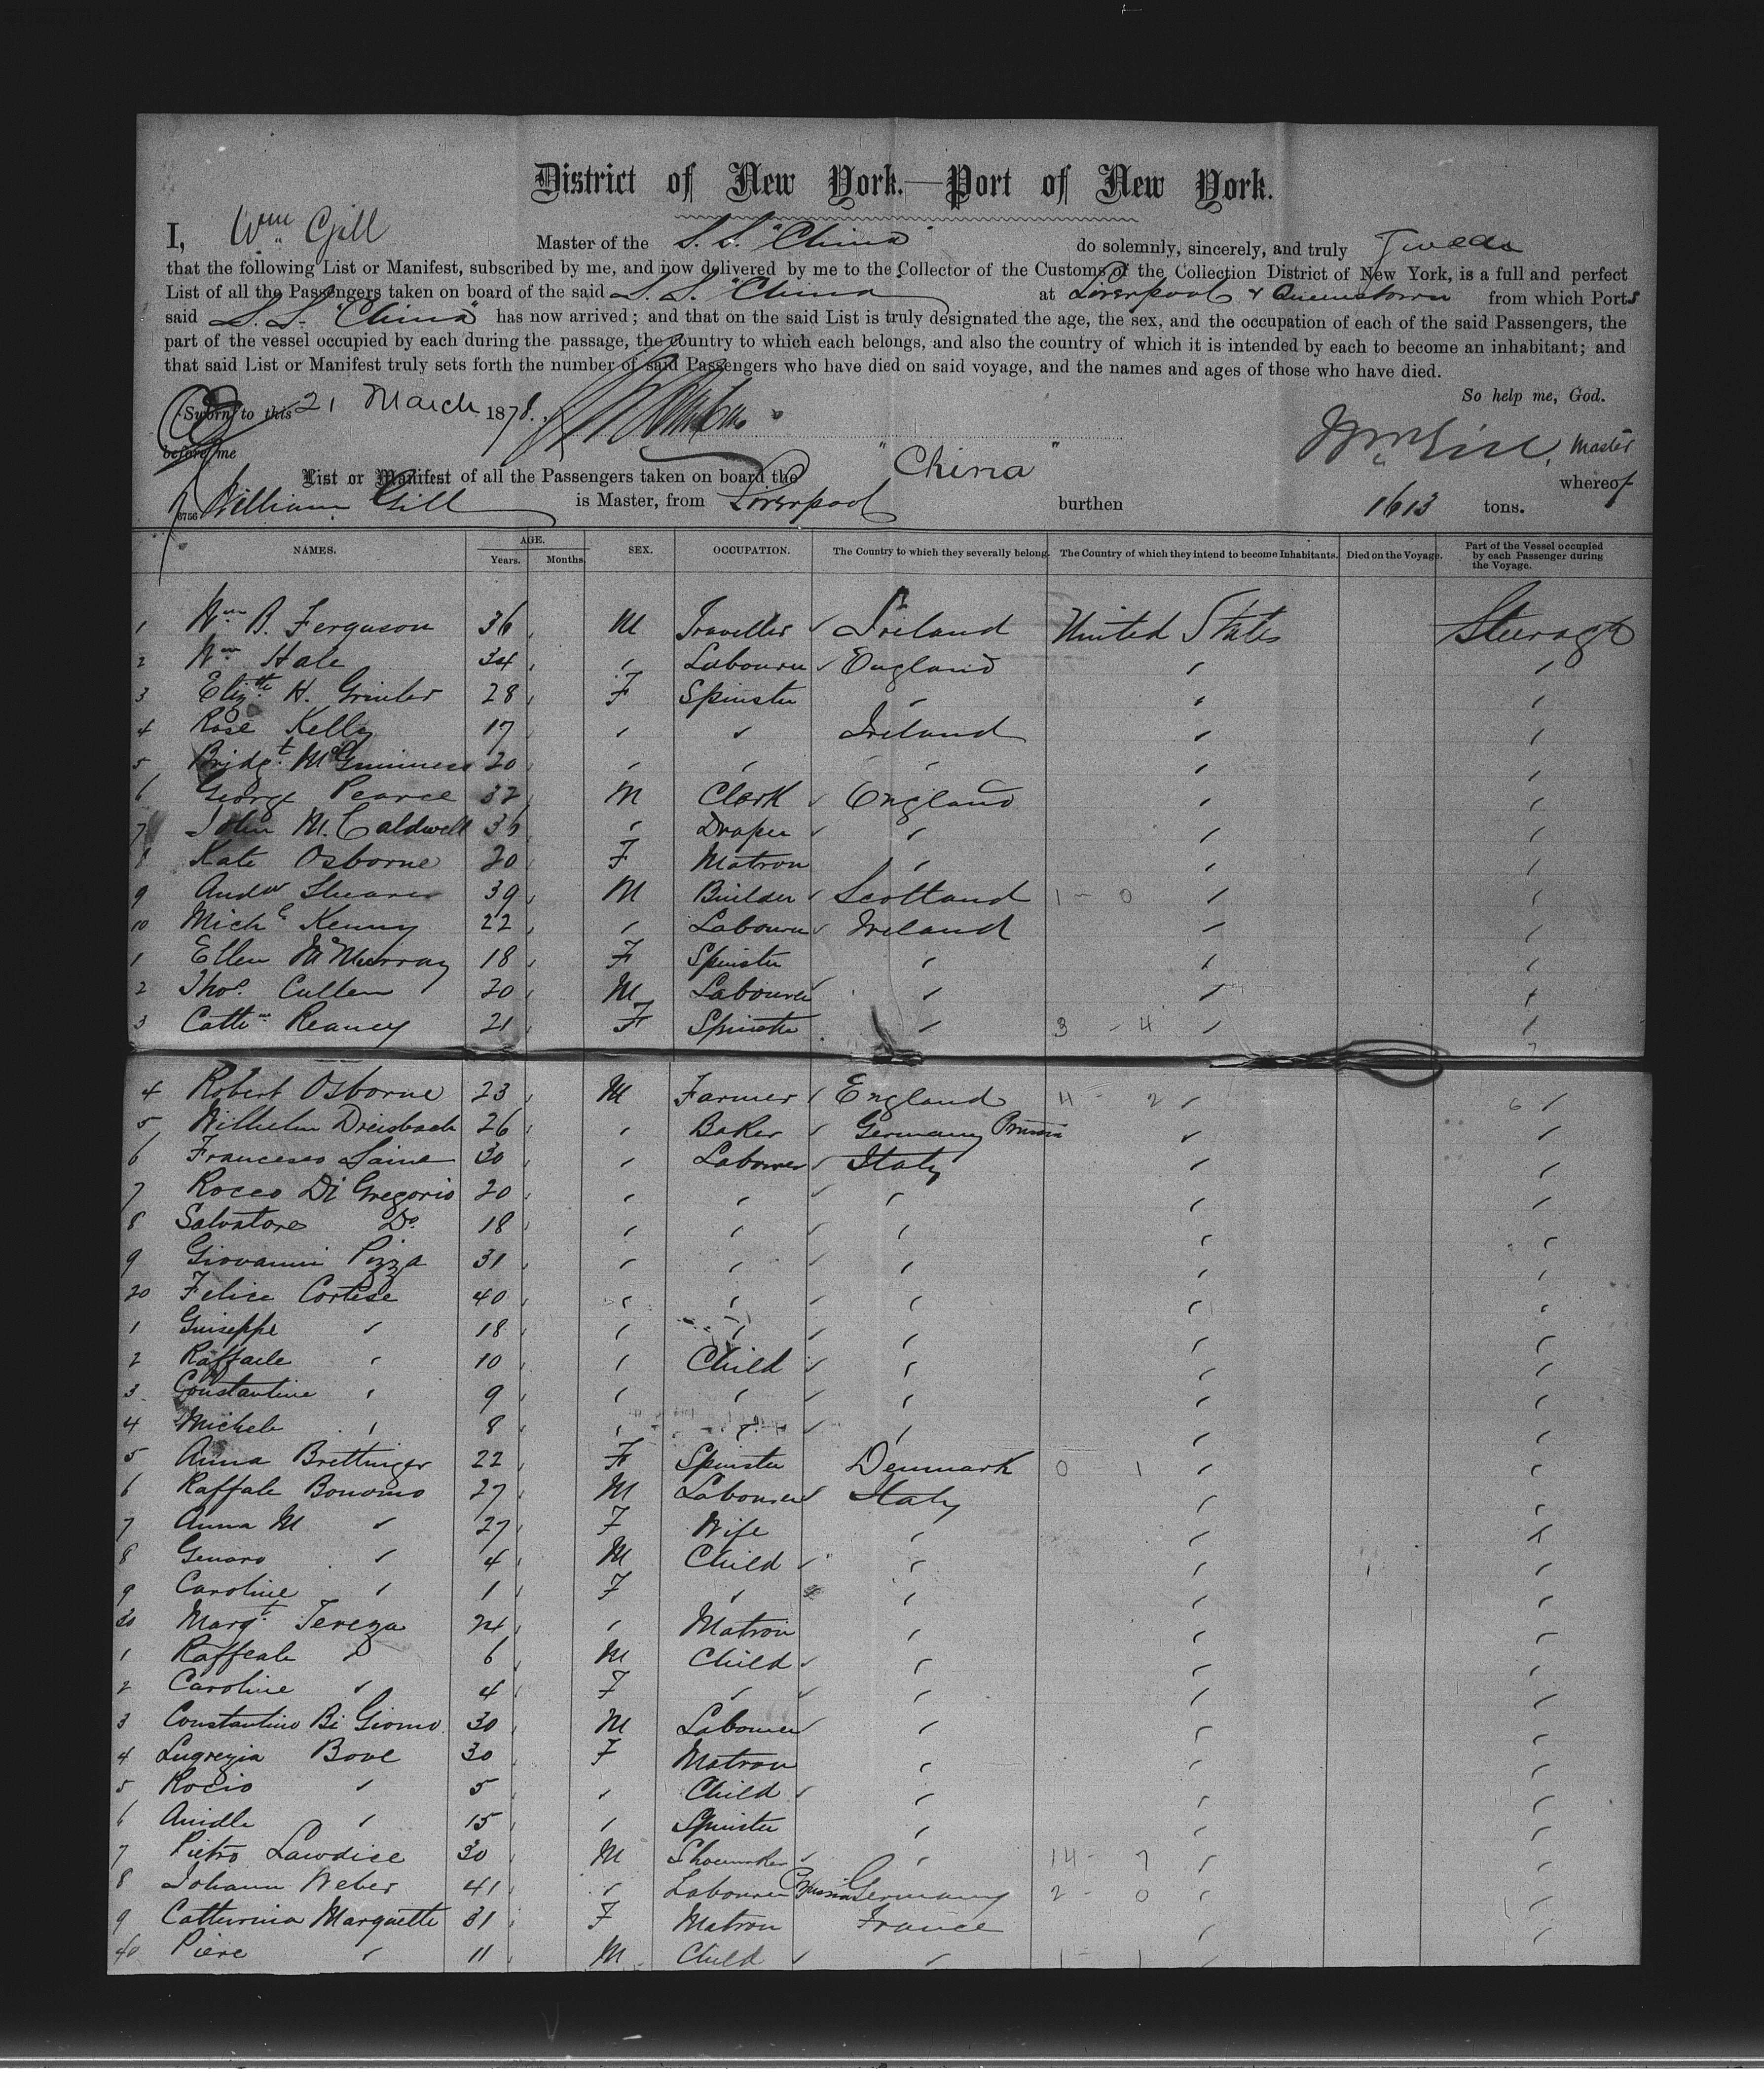 District of New York.—Port of New York.
I, Wm Gill Master of the S.S. "China" do solemnly, sincerely, and truly
that the following List or Manifest, subscribed by me, and now delivered by me to the Collector of the Customs of the Collection District of New York, is a full and perfect
List of all the Passengers taken on board of the said S.S. "China" at Liverpool & Queenstown from which Ports
said S.S. "China" has now arrived; and that on the said List is truly designated the age, the sex, and the occupation of each of the said Passengers, the
part of the vessel occupied by each during the passage, the country to which each belongs, and also the country of which it is intended by each to become an inhabitant; and
that said List or Manifest truly sets forth the number of said Passengers who have died on said voyage, and the names and ages of those who have died.
So help me, God.
Sworn to this 21 March 1878.
before me
Wm Gill, Master
List or Manifest of all the Passengers taken on board the "China" whereof
6756 William Gill is Master, from Liverpool burthen 1613 tons.
NAMES. AGE. Years. Months. SEX. OCCUPATION. The Country to which they severally belong. The Country of which they intend to become Inhabitants. Died on the Voyage. Part of the Vessel occupied by each Passenger during the Voyage.
1 Wm B. Ferguson 36 M Traveller Ireland United States Steerage
2 Wm Hale 34 " Labourer England " "
3 Elizth H. 28 F Spinster " " "
4 Rose Kelly 17 " " Ireland " "
5 Bridgt McGuinness 20 " " " " "
6 George Pearce 32 M Clerk England " "
7 John M. Caldwell 36 " Draper " " "
8 Kate Osborne 20 F Matron " " "
9 Andw Shearer 39 M Builder Scotland 1 - 0 " "
10 Michl Kenny 22 " Labourer Ireland " "
1 Ellen McMurray 18 F Spinster " " "
2 Thos. Cullen 20 M Labourer " " "
3 Cathne Reaney 21 F Spinster " 3 - 4 " "
4 Robert Osborne 23 M Farmer England 4 - 2 " 6 "
5 Wilhelm Dreisbach 26 " Baker Germany Prussia " "
6 Francesco 30 " Labourer Italy " "
7 Rocco Di Gregorio 20 " " " " "
8 Salvatore Do 18 " " " " "
9 Giovanni Pizza 31 " " " " "
20 Felice Cortese 40 " " " " "
1 Guiseppe " 18 " " " " "
2 Raffaele " 10 " Child " " "
3 Constantine " 9 " " " " "
4 Michele " 8 " " " " "
5 Anna Brettinger 22 F Spinster Denmark 0 1 " "
6 Raffale Bonomo 27 M Labourer Italy " "
7 Anna M " 27 F Wife " " "
8 Genaro " 4 M Child " " "
9 Caroline " 1 F " " " "
30 Margt Tereza 24 " Matron " " "
1 Raffeale " 6 M Child " " "
2 Caroline " 4 F " " " "
3 Constantino Bi Giomo 30 M Labourer " " "
4 Lugrezia Bove 30 F Matron " " "
5 Rocio " 5 " Child " " "
6 " 15 " Spinster " " "
7 Pietro Lawdice 30 M Shoemaker " 14 - 7 " "
8 Johann Weber 41 " Labourer Prussia Germany 2 - 0 " "
9 Catturina Marquette 31 F Matron France " "
40 Piere " 11 M Child " 1 - 1 " "